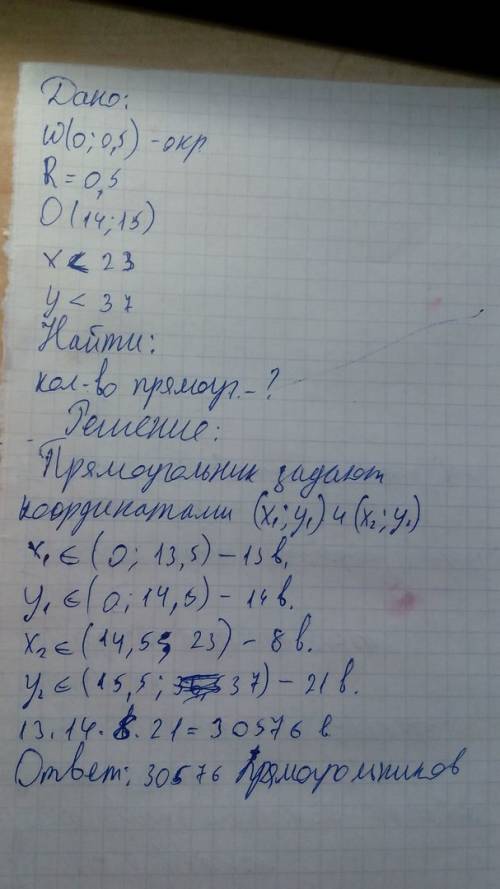 Дано:
W(0; 0,5) - окр
R = 0,5
O(14; 15)
x < 23
y < 37
Найти:
кол-во прямоуг. - ?
Решение:
Прямоугольник задают
координатами (x₁; y₁) и (x₂; y₂)
x₁ ∈ (0; 13,5) - 13 в.
y₁ ∈ (0; 14,5) - 14 в.
x₂ ∈ (14,5; 23) - 8 в.
y₂ ∈ (15,5; 37) - 21 в.
13 . 14 . 8 . 21 = 30576 в
Ответ: 30576 прямоугольников